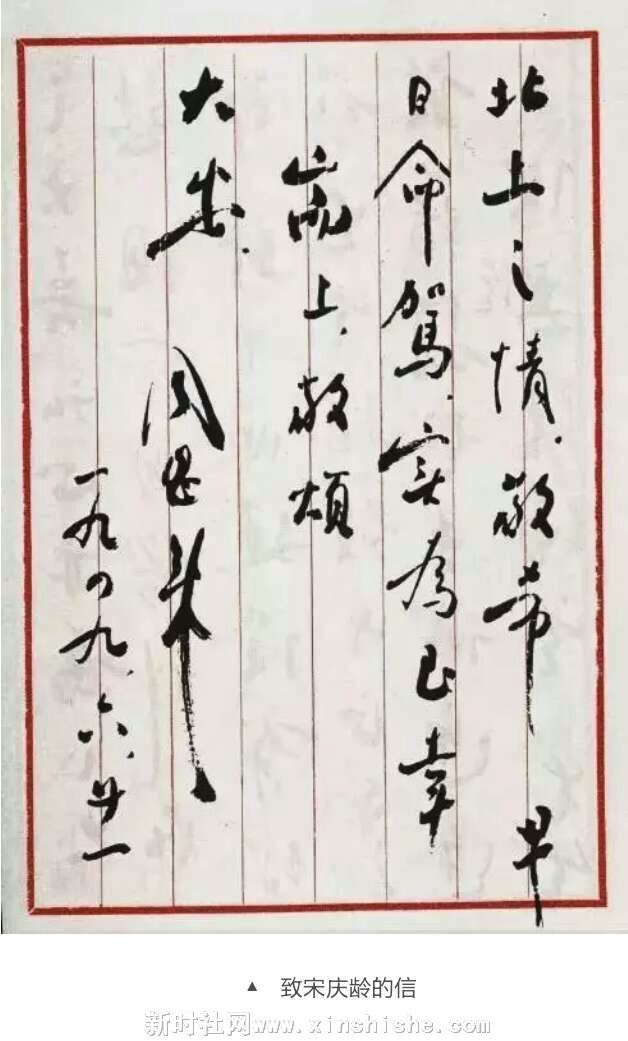 北上之情.敬希早
日命駕.实為至幸
耑上.敬頌
大安.
周恩来
一九四九.六.廿一
▲ 致宋庆龄的信
新时社网www.xinshishe.com